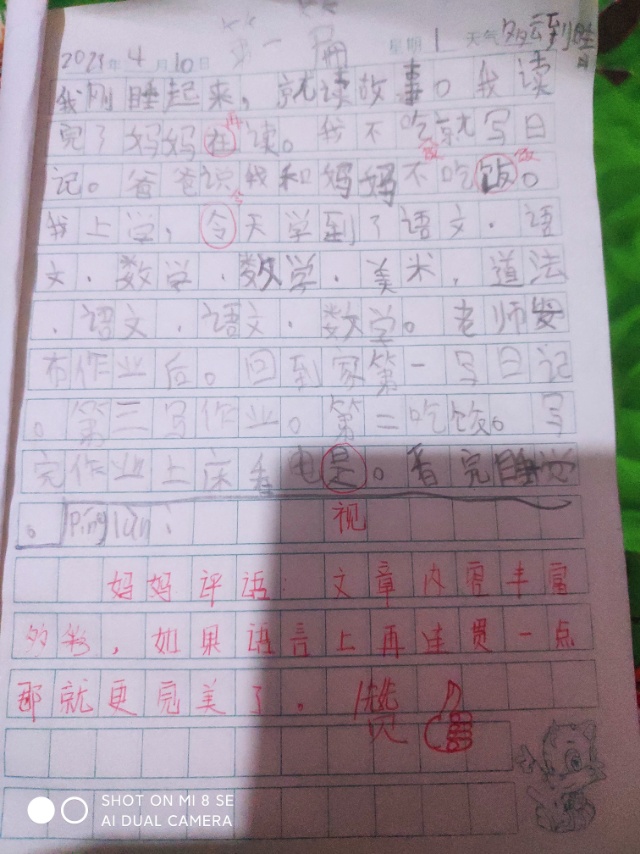 第一篇
2021年4月10日 星期1 天气多云到晴
我刚睡起来，就读故事。我读
完了妈妈在读。我不吃就写日
记。爸爸说我和妈妈不吃饭。
我上学，令天学到了语文．语
文．数学．数学．美术，道法
．语文．语文．数学。老师发
布作业后。回到家第一写日记
。第三写作业。第二吃饭。写
完作业上床看电是。看完睡觉
。Ping lun：
视
妈妈评语：文章内容丰富
多彩，如果语言上再连贯一点
那就更完美了。赞
SHOT ON MI 8 SE
AI DUAL CAMERA